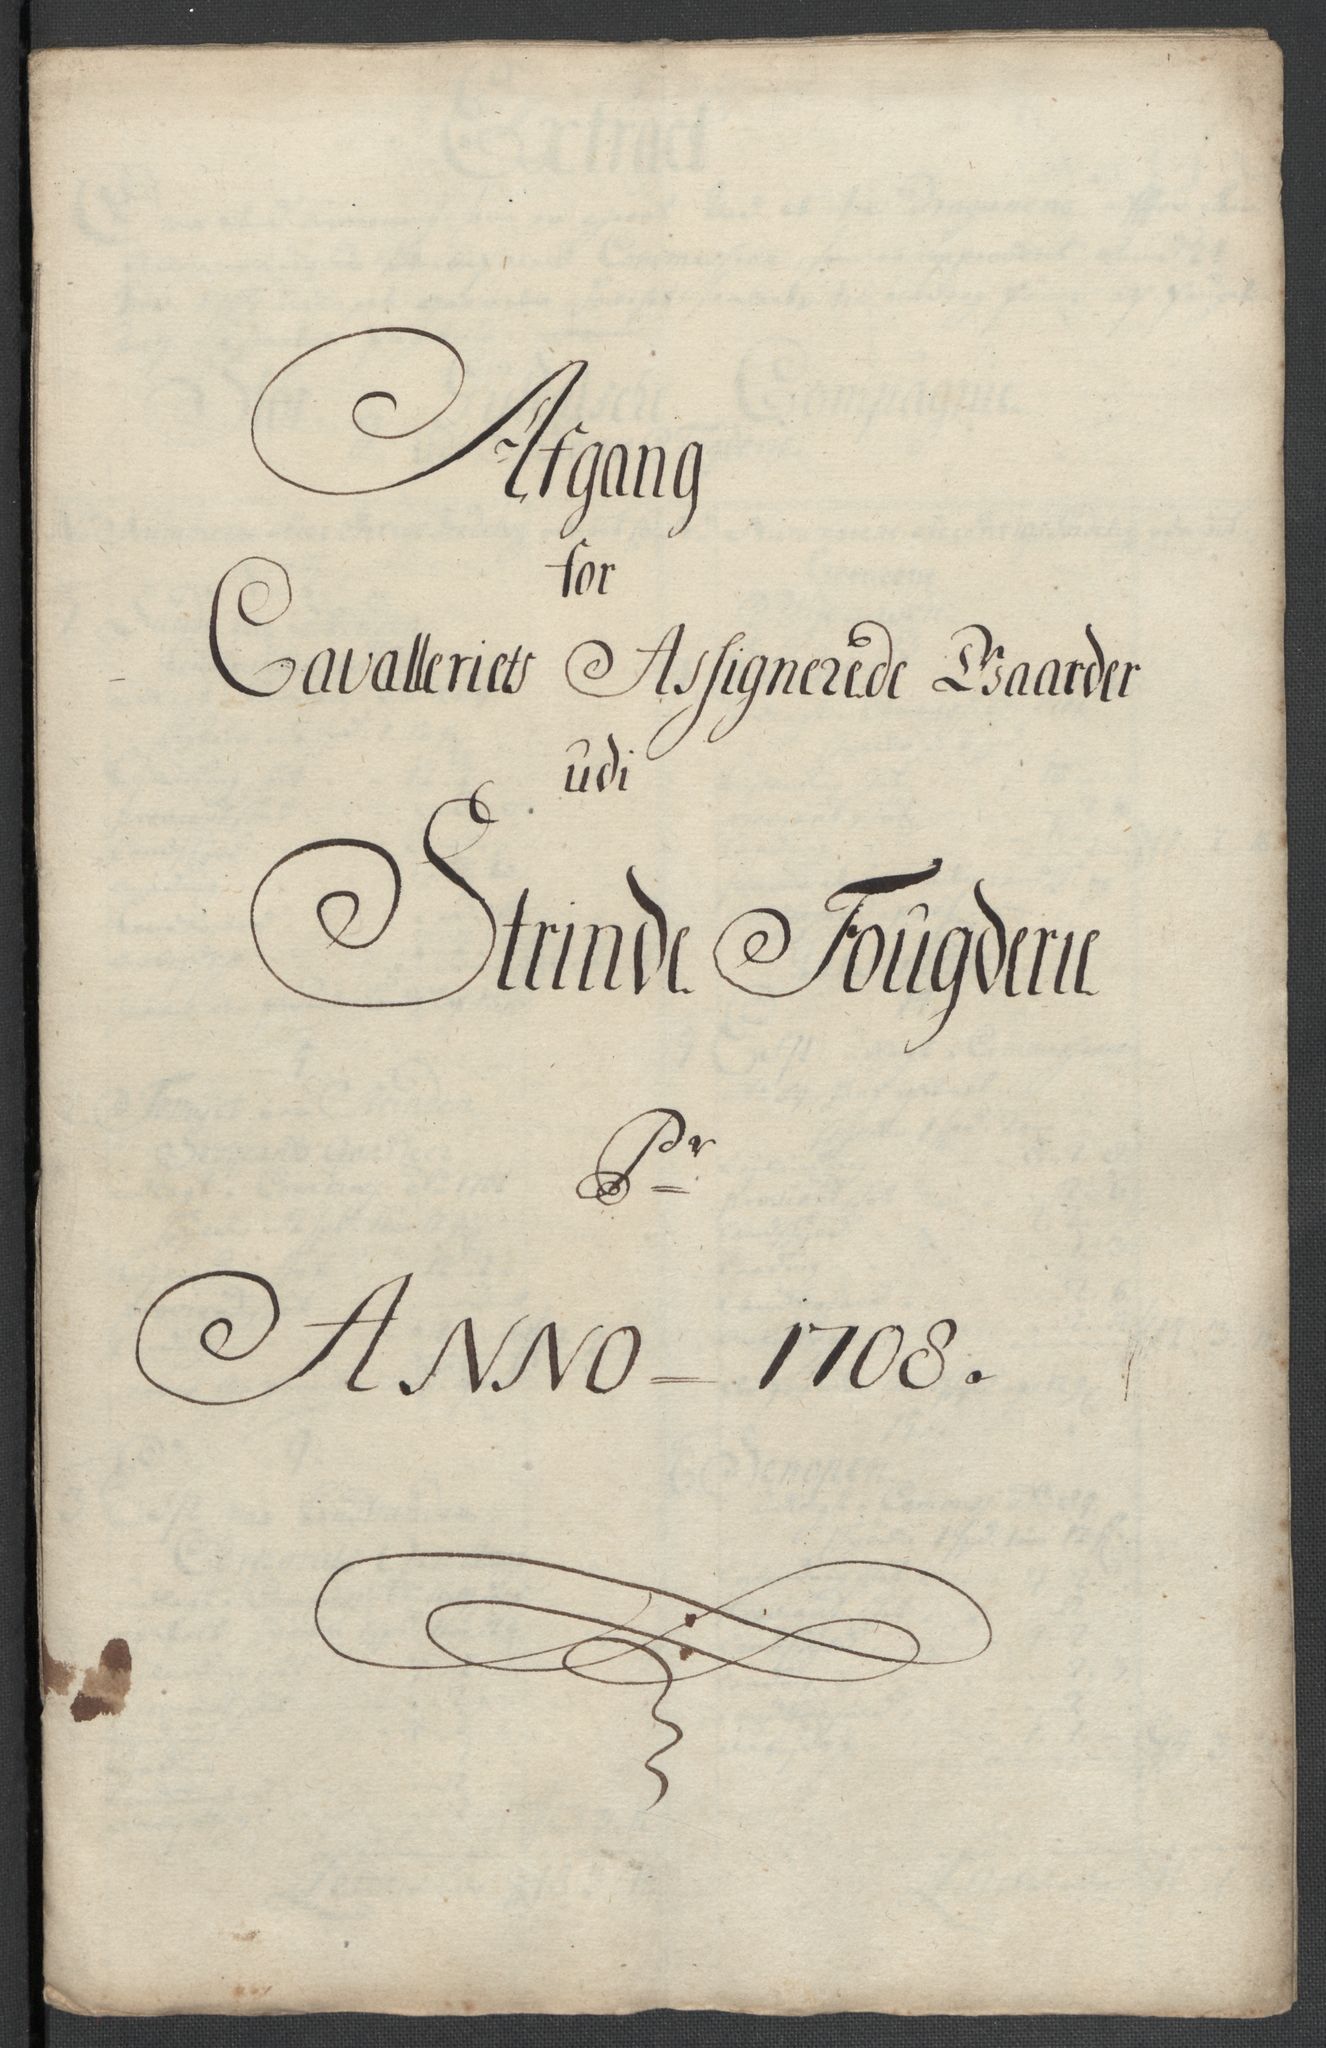 Afgang
for
Cavalleriets Assignerede Gaarder
udi
Strinde Fougderie
Pr
ANNO – 1708.